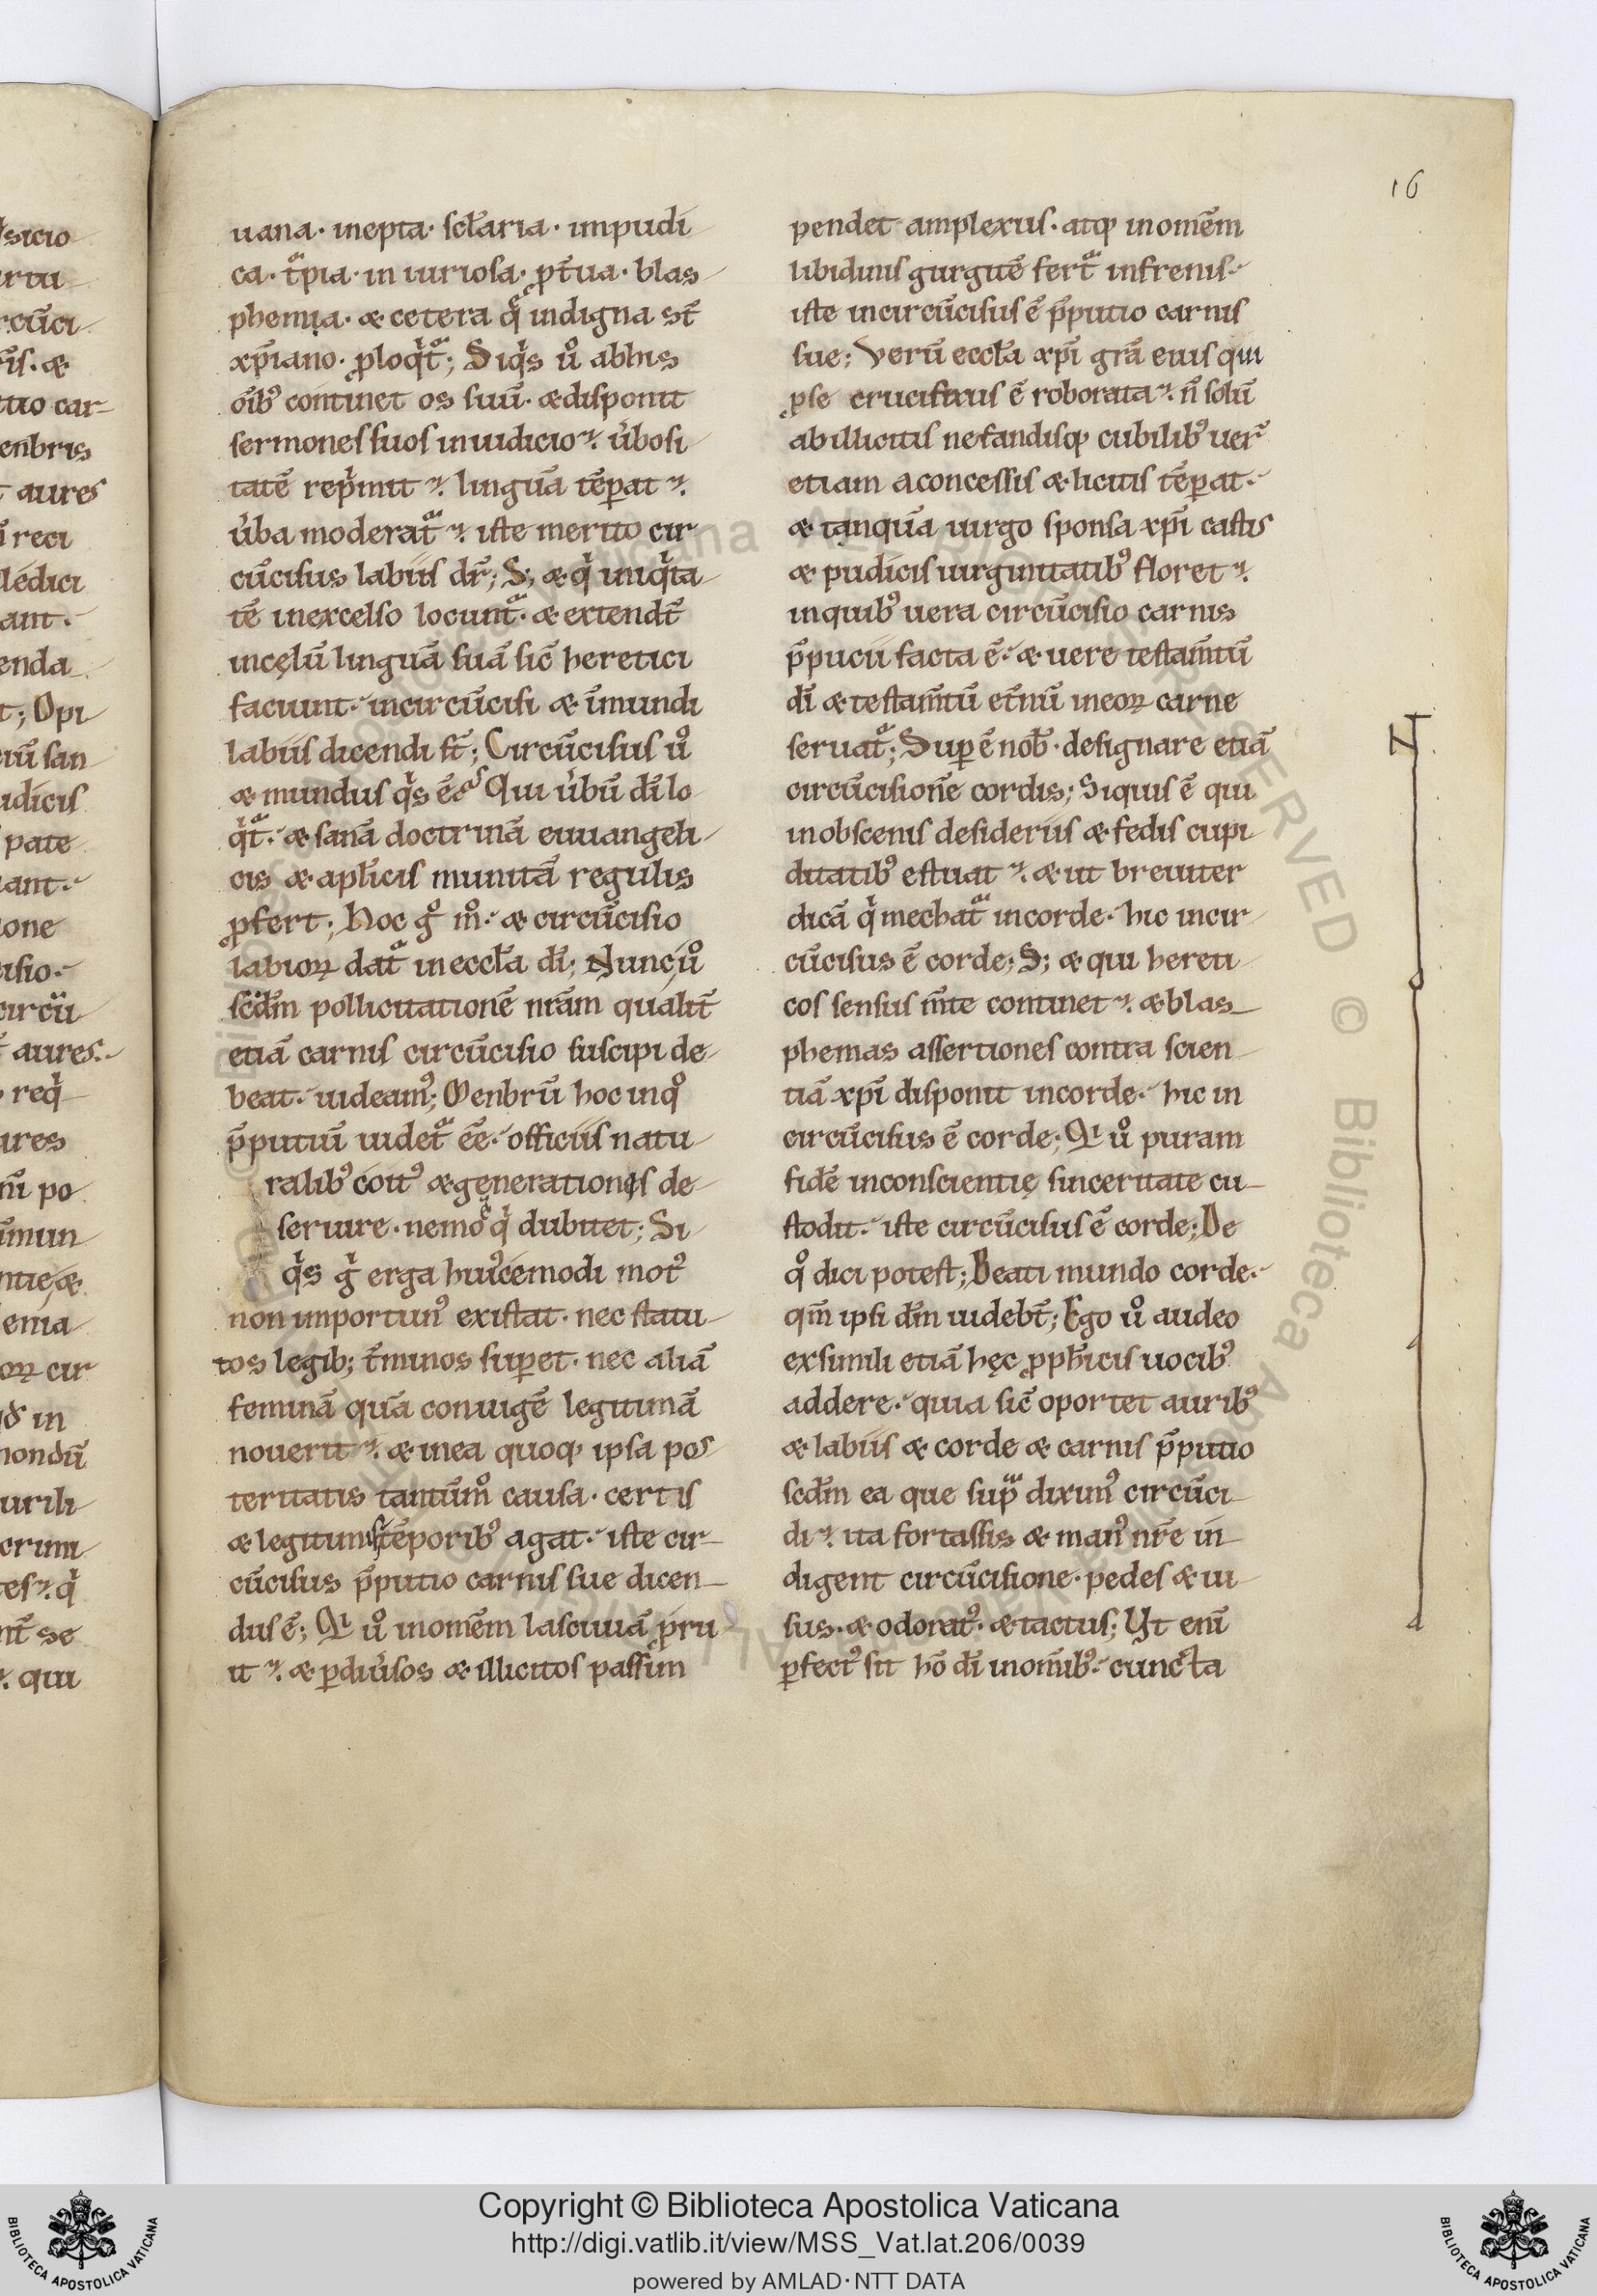 16
uana· inepta· scl̄aria· impudi
ca· tͣpia· in iuriosa· ꝓt̄ua· blas
phemia· & cetera q̄ indigna st̄
xp̄iano· ꝓloqͥtͣ; Siqͥs ů abhis
oīb; continet os suū· & disponit
sermones suos iniudicio· ůbosi
tatē rep̍mit· linguā tēꝑat·
u̍ba moderatͣ· iste merito cir
cūcisus labiis dr̄; S; & qͥ iniqͥta
tē inexcelso locuntͣ· & extendt̄
incęlū linguā suā sic̄ heretici
faciunt· incircūcisi & īmundi
labiis dicendi st̄; Circūcisus ů
& mundus qͥs ē Qui u̍bū dī lo
qͥtͣ· & sanā doctrinā euuangeli
cis & apl̄icis munitā regulis
ꝓfert; Hoc g̊ m̊· & circūcisio
labioꝝ datͣ ineccl̄a dī; Nunc ů
scd̄m pollicitationē nr̄am qualit̄
etiā carnis circūcisio suscipi de
beat· uideamꝰ; Menbrū hoc inqͦ
p̄putiū uidetͣ ēē· officiis natu
ralibꝰ coitꝰ & generationis de
seruire· nemo ē qͥ dubitet; Si
qͥs gͥ erga huiꝰcemodi motꝰ
non importunꝰ existat· nec statu
tos legib; t̄minos suꝑet· nec aliā
feminā quā coniugē legitimā
nouerit· & inea quoq; ipsa pos
teritatis tantūm̊ causa· certis
& legitimis tēporibꝰ agat· iste cir
cūcisus p̄putio carnis sue dicen
dus ē; Qͥ ů inomēm lasciuiā ꝓru
it· & ꝑdiu̍sos & illicitos passim
pendet amplexus· atq; inomēm
libidinis gurgitē fertͣ infrenis·
iste incircūcisus ē p̄putio carnis
sue; Verū eccl̄a xp̄i grā eius qui
ꝓ se crucifixus ē roborata· n̄ solū
abillicitis nefandisq; cubilibꝰ uer̄
etiam aconcessis & licitis tēꝑat·
& tanquā uirgo sponsa xp̄i castis
& pudicis uirginitatibꝰ floret·
inquibꝰ uera circūcisio carnis
p̄pucii facta ē· & uere testam̄tū
dī & testam̄tū et̄nū ineoꝝ carne
seruatͣ; Suꝑ ē nob̄· designare etiā
circūcisionē cordis; Siquis ē qui
inobscenis desideriis & fedis cupi
ditatibꝰ estuat· & ut breuiter
dicā qͥ mechatͣ incorde· hic incir
cūcisus ē corde; S; & qui hereti
cos sensus m̄te continet· & blas
phemas assertiones contra scien
tiā xp̄i disponit incorde· hic in
circūcisus ē corde; Qͥ ů puram
fidē inconscientię sinceritate cu
stodit· iste circūcisus ē corde; De
qͦ dici potest; Beati mundo corde·
qm̄ ipsi dm̄ uidebt̄; Ego ů audeo
exsimili etiā hęc ꝓph̄icis uocibꝰ
addere· quia sic̄ oportet auribꝰ
& labiis & corde & carnis p̄putio
scd̄m ea que supͣ diximꝰ circūci
di· ita fortassis & manꝰ nr̄e in
digent circūcisione· pedes & ui
sus· & odoratꝰ· & tactus; Ut enī
ꝑfectꝰ sit hō dī inom̄ibꝰ· cuncta
Copyright © Biblioteca Apostolica Vaticana
http://digi.vatlib.it/view/MSS_Vat.lat.206/0039
powered by AMLAD·NTT DATA
BIBLIOTECA APOSTOLICA VATICANA
BIBLIOTECA APOSTOLICA VATICANA